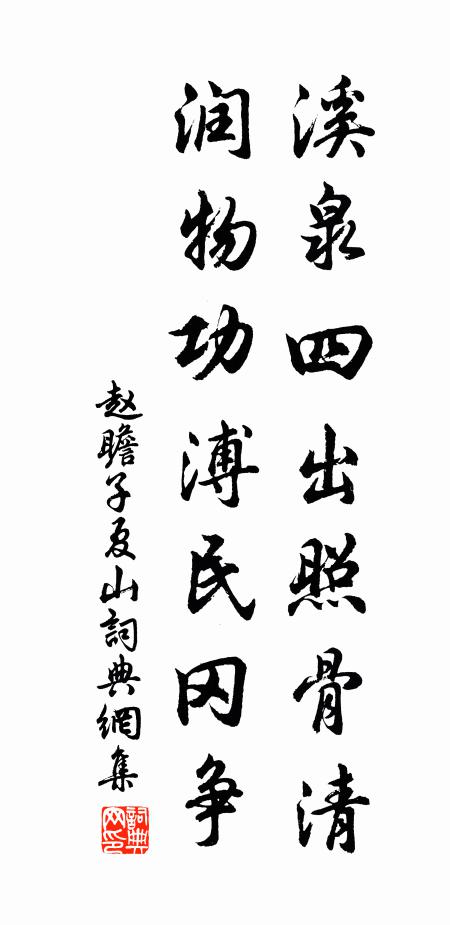 溪泉四出照骨清
润物功溥民罔争
赵瞻子夏山詞典網集
詞典网印